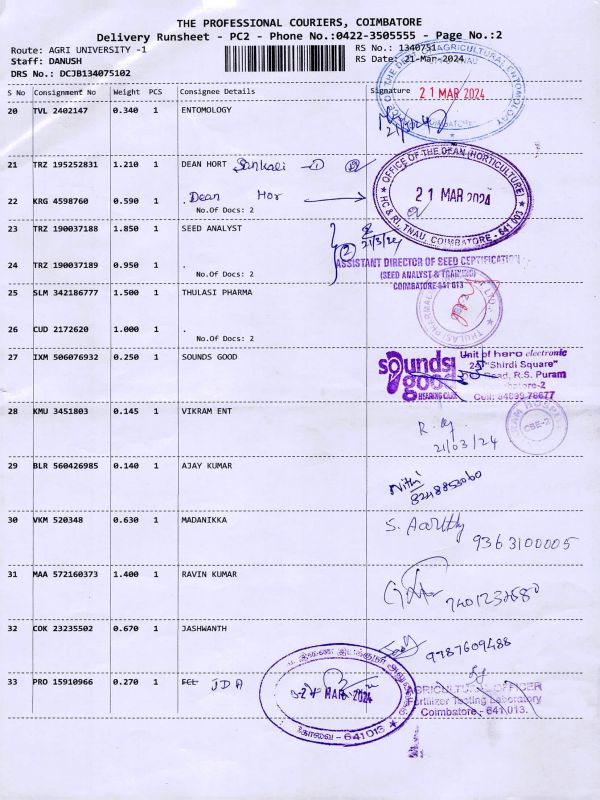 THE PROFESSIONAL COURIERS, COIMBATORE
Delivery Runsheet - PC2 - Phone No.:0422-3505555 - Page No.:2
Route: AGRI UNIVERSITY -1
RS No.: 1340751
Staff: DANUSH
RS Date: 21-Mar-2024
DRS No.: DCJB134075102
S No Consignment No Weight PCS Consignee Details Signature
21 MAR 2024
20 TVL 2402147 0.340 1 ENTOMOLOGY
21 TRZ 195252831 1.210 1 DEAN HORT
OFFICE OF THE DEAN (HORTICULTURE)
21 MAR 2024
HC & RI, TNAU, COIMBATORE - 641 003
22 KRG 4598760 0.590 1 . Dean Hor
No.Of Docs: 2
23 TRZ 190037188 1.850 1 SEED ANALYST
2 21/3/24
24 TRZ 190037189 0.950 1 .
No.Of Docs: 2
ASSISTANT DIRECTOR OF SEED CERTIFICATION
(SEED ANALYST & TRAINING)
COIMBATORE 641 013
25 SLM 342186777 1.500 1 THULASI PHARMA
26 CUD 2172620 1.000 1 .
No.Of Docs: 2
27 IXM 506076932 0.250 1 SOUNDS GOOD
sounds good
HEARING CARE
Unit of hero electronic
"Shirdi Square"
Road, R.S. Puram
28 KMU 3451803 0.145 1 VIKRAM ENT
21/03/24
CBE-2
29 BLR 560426985 0.140 1 AJAY KUMAR
Nithi
8248853060
30 VKM 520348 0.630 1 MADANIKKA
9363100005
31 MAA 572160373 1.400 1 RAVIN KUMAR
7401232680
32 COK 23235502 0.670 1 JASHWANTH
9787609488
33 PRO 15910966 0.270 1 FCL JDA
MAR 2024
கோவை - 641013
AGRICULTURAL OFFICER
Fertilizer Testing Laboratory
Coimbatore - 641 013.